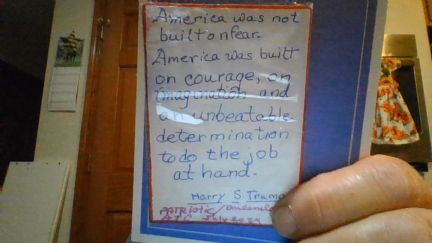 America was not
built on fear.
America was built
on courage, on
imagination and
an unbeatable
determination
to do the job
at hand.
Harry S. Truma